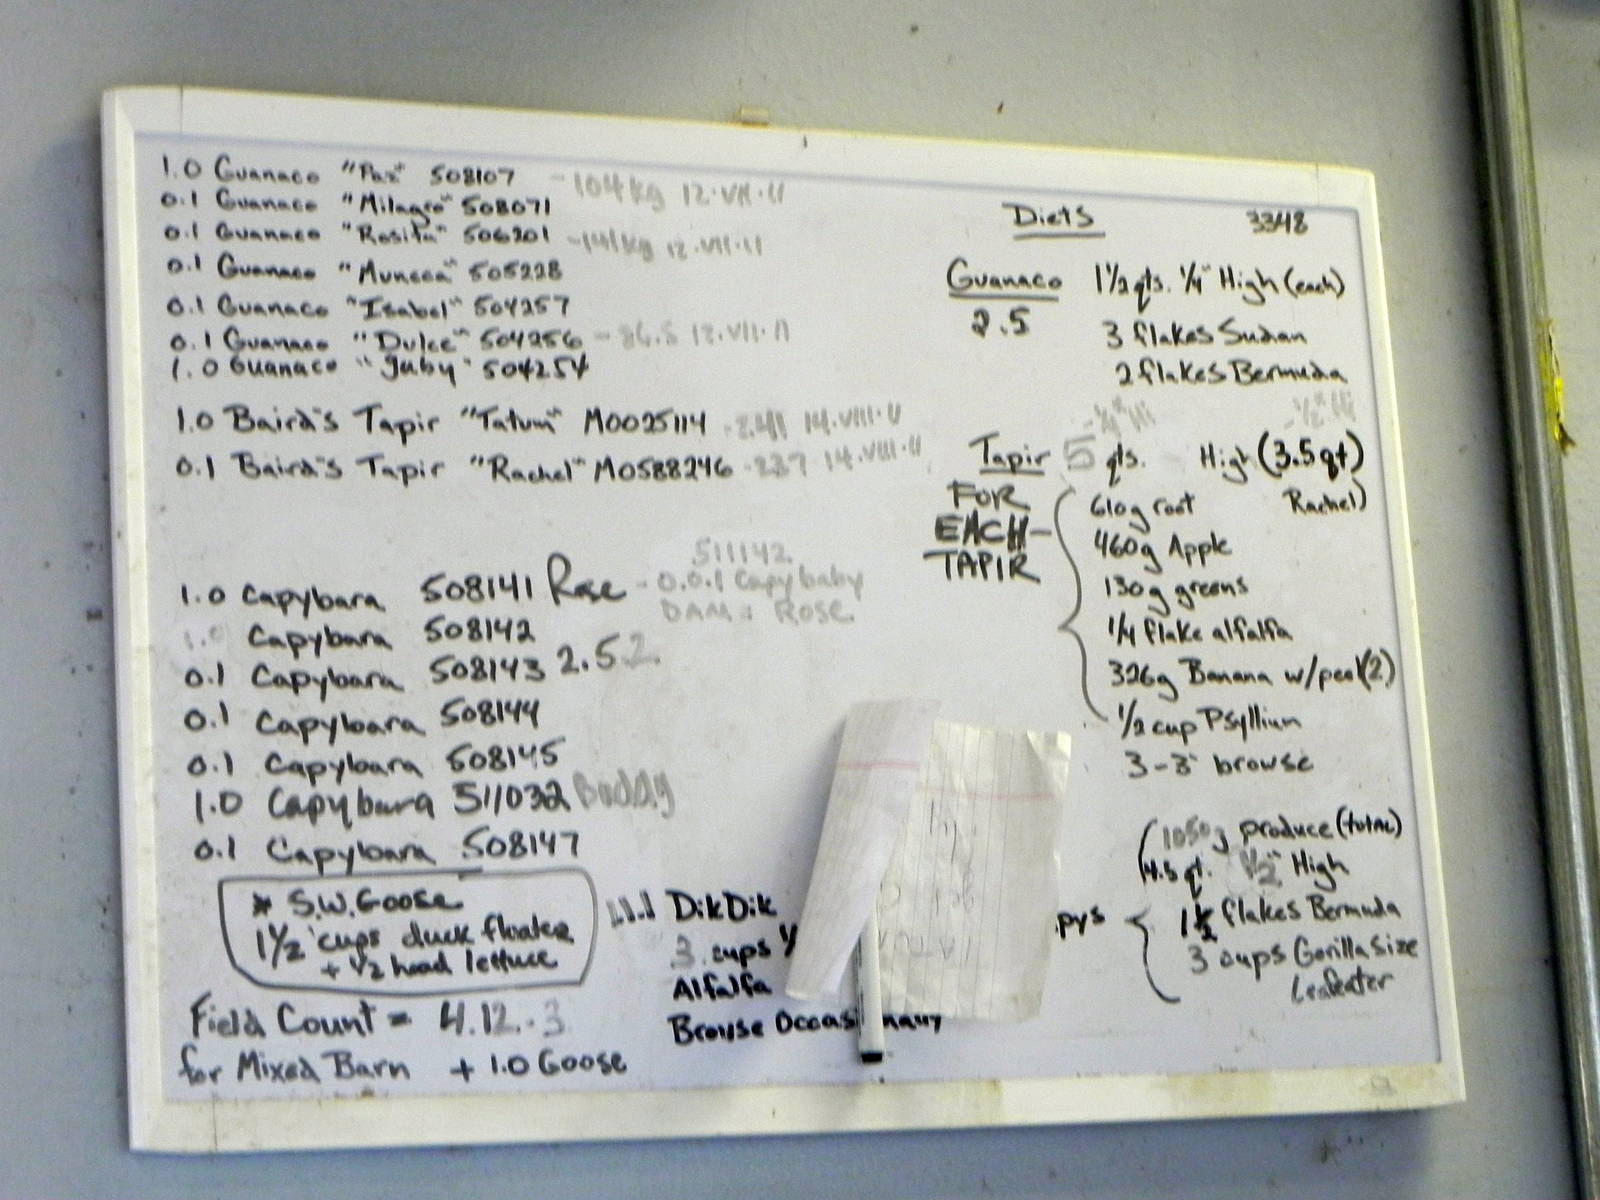 1.0 Guanaco "Paz" 508107 - 104 kg 12·VII·11
0.1 Guanaco "Milagro" 508071
0.1 Guanaco "Rosita" 506201 - 141 kg 12·VII·11
0.1 Guanaco "Muneca" 505228
0.1 Guanaco "Isabel" 504257
0.1 Guanaco "Dulce" 504256 - 86.5 12·VII·11
1.0 Guanaco "Juby" 504254
1.0 Baird's Tapir "Tatum" M0025114 - 241 14·VIII·11
0.1 Baird's Tapir "Rachel" M0588246 - 237 14·VIII·11
511142
1.0 Capybara 508141 Rose - 0.0.1 Capybaby
DAM = ROSE
1.0 Capybara 508142
0.1 Capybara 508143 2.5.2
0.1 Capybara 508144
0.1 Capybara 508145
1.0 Capybara 511032 Buddy
0.1 Capybara 508147
* S.W. Goose
1 1/2 cups duck floater
+ 1/2 head lettuce
Field Count = 4.12.3
for Mixed Barn + 1.0 Goose
1.1.1 DikDik
3 cups
Alfalfa
Browse Occasionally
Diets 3348
Guanaco 1 1/2 qts. 1/4" High (each)
2.5 3 flakes Sudan
2 flakes Bermuda
- 1/4" Hi - 1/2" Hi
Tapir 5 qts. High (3.5 qt)
Rachel)
FOR EACH TAPIR
610g root
460g Apple
130g greens
1/4 flake alfalfa
326g Banana w/peel (2)
1/2 cup Psyllium
3-3' browse
1050g produce (total)
4.5 qt. 1/2" High
pys 1 1/2 flakes Bermuda
3 cups Gorilla Size
Leafeater